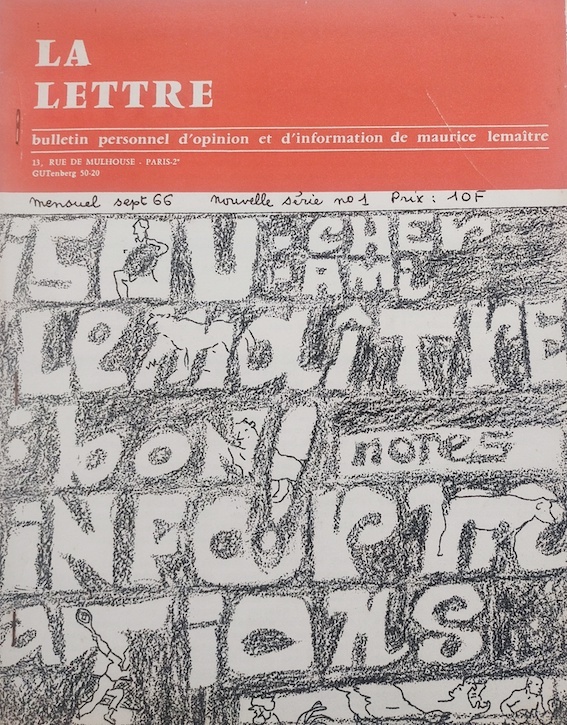 LA
LETTRE
bulletin personnel d'opinion et d'information de maurice lemaître
13, RUE DE MULHOUSE - PARIS-2e
GUTenberg 50-20
mensuel sept 66 nouvelle série no 1 Prix : 10F
iSOU : CHER
AMi
LEmAîTRE
: bon! notes
iNFORmA
ATiONS